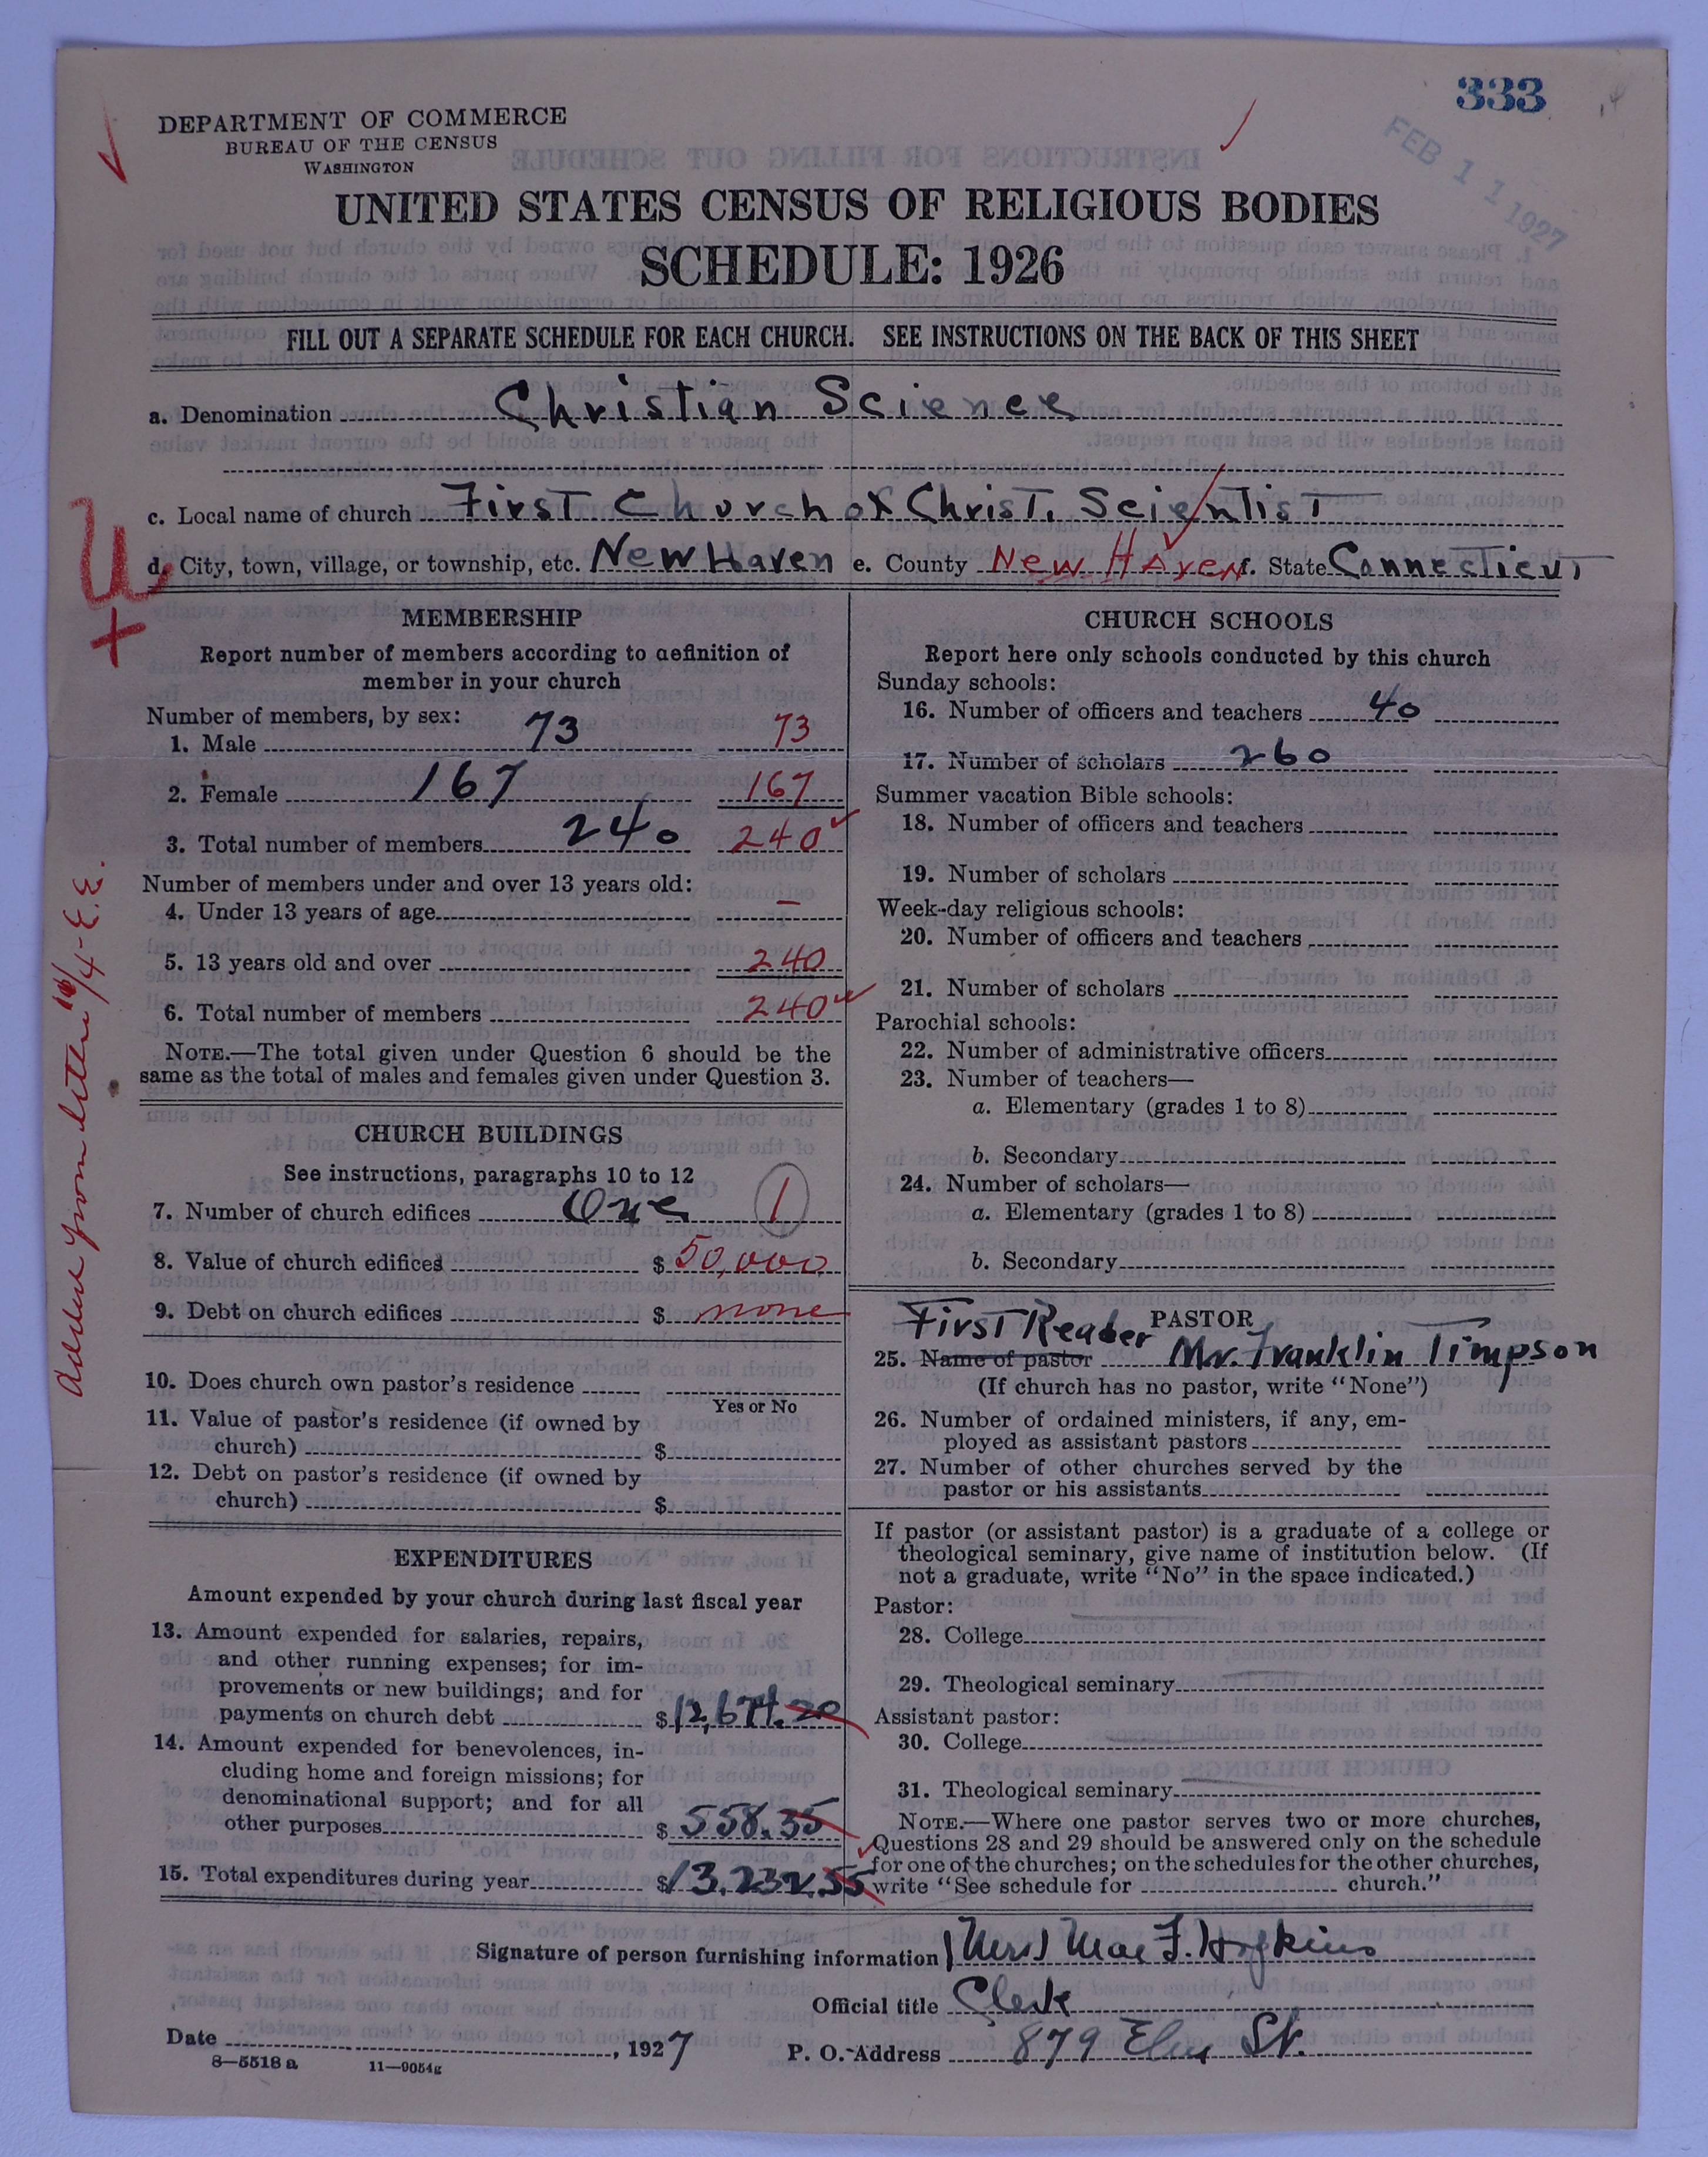 333
FEB 11 1927
DEPARTMENT OF COMMERCE
BUREAU OF THE CENSUS
WASHINGTON
UNITED STATES CENSUS OF RELIGIOUS BODIES
SCHEDULE: 1926
FILL OUT A SEPARATE SCHEDULE FOR EACH CHURCH. SEE INSTRUCTIONS ON THE BACK OF THIS SHEET
a. Denomination Christian Science
c. Local name of church First Church of Christ, Scientist
d. City, town, village, or township, etc. New Haven e. County New Haven f. State Connecticut
U
+
MEMBERSHIP
Report number of members according to definition of
member in your church
Number of members, by sex:
1. Male 73 73
2. Female 167 167
3. Total number of members 240 240
Number of members under and over 13 years old:
4. Under 13 years of age –
5. 13 years old and over 240
6. Total number of members 240
NOTE.—The total given under Question 6 should be the
same as the total of males and females given under Question 3.
CHURCH BUILDINGS
See instructions, paragraphs 10 to 12
7. Number of church edifices One 1
8. Value of church edifices $ 50,000
9. Debt on church edifices $ none
10. Does church own pastor's residence
Yes or No
11. Value of pastor's residence (if owned by
church) $
12. Debt on pastor's residence (if owned by
church) $
EXPENDITURES
Amount expended by your church during last fiscal year
13. Amount expended for salaries, repairs,
and other running expenses; for im-
provements or new buildings; and for
payments on church debt $ 12,674.20
14. Amount expended for benevolences, in-
cluding home and foreign missions; for
denominational support; and for all
other purposes $ 558.35
15. Total expenditures during year $ 13,232.55
CHURCH SCHOOLS
Report here only schools conducted by this church
Sunday schools:
16. Number of officers and teachers 40
17. Number of scholars 260
Summer vacation Bible schools:
18. Number of officers and teachers
19. Number of scholars
Week-day religious schools:
20. Number of officers and teachers
21. Number of scholars
Parochial schools:
22. Number of administrative officers
23. Number of teachers—
a. Elementary (grades 1 to 8)
b. Secondary
24. Number of scholars—
a. Elementary (grades 1 to 8)
b. Secondary
First Reader PASTOR
25. Name of pastor Mr. Franklin Timpson
(If church has no pastor, write "None")
26. Number of ordained ministers, if any, em-
ployed as assistant pastors
27. Number of other churches served by the
pastor or his assistants
If pastor (or assistant pastor) is a graduate of a college or
theological seminary, give name of institution below. (If
not a graduate, write "No" in the space indicated.)
Pastor:
28. College
29. Theological seminary
Assistant pastor:
30. College
31. Theological seminary
NOTE.—Where one pastor serves two or more churches,
Questions 28 and 29 should be answered only on the schedule
for one of the churches; on the schedules for the other churches,
write "See schedule for church."
Signature of person furnishing information (Mrs) Mae F. Hopkins
Official title Clerk
Date , 1927 P. O. Address 879 Elm St.
8—5518 a 11—9054g
from letter 4-E.E.